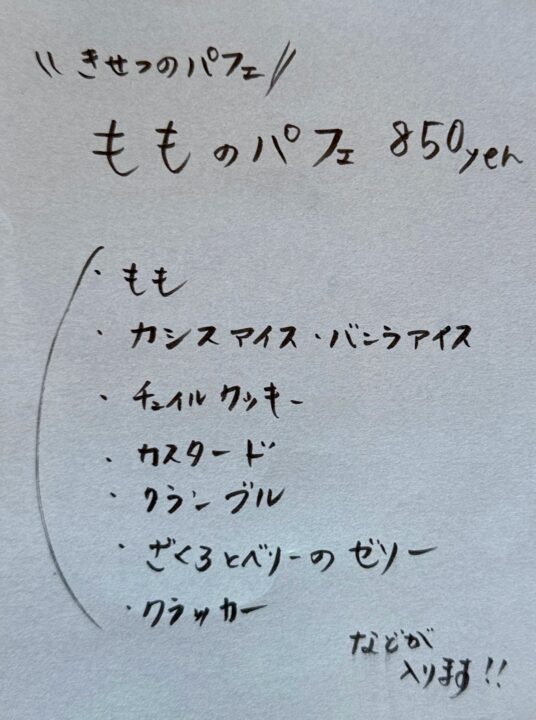 \\ きせつのパフェ //
もものパフェ 850yen
・もも
・カシスアイス・バニラアイス
・チュイルクッキー
・カスタード
・クランブル
・ざくろとベリーのゼリー
・クラッカー
などが
入ります!!